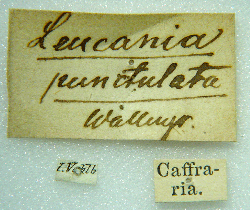 Leucania
punctulata
Wallengr.
Caffra-
ria.